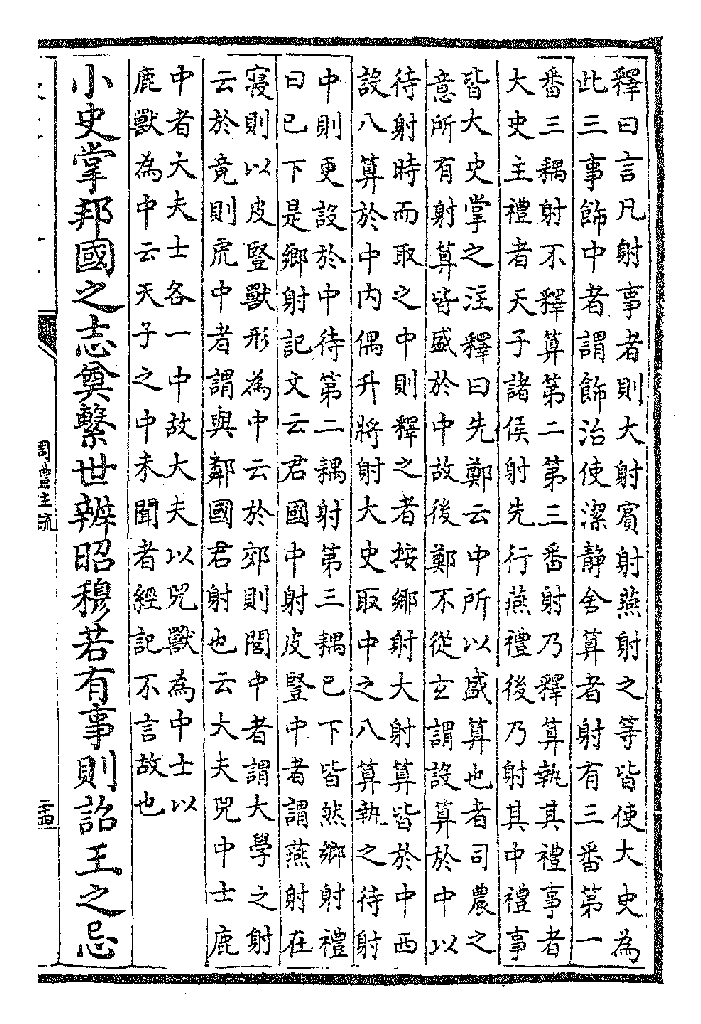 釋曰言凡射事者則大射賓射燕射之等皆使大史為
此三事飾中者謂飾治使潔静舍算者射有三番第一
番三耦射不釋算第二第三番射乃釋算執其禮事者
大史主禮者天子諸侯射先行燕禮後乃射其中禮事
皆大史掌之注釋曰先鄭云中所以盛算也者司農之
意所有射算皆盛於中故後鄭不從玄謂設算於中以
待射時而取之中則釋之者按鄉射大射算皆於中西
設八算於中内偶升將射大史取中之八算執之待射
中則更設於中待第二耦射第三耦已下皆然鄉射禮
曰已下是鄉射記文云君國中射皮豎中者謂燕射在
寢則以皮豎獸形為中云於郊則閭中者謂大學之射
云於竟則虎中者謂與鄰國君射也云大夫兕中士鹿
中者大夫士各一中故大夫以兕獸為中士以
鹿獸為中云天子之中未聞者經記不言故也
小史掌邦國之志奠繫世辨昭穆若有事則詔王之忌
周禮注疏